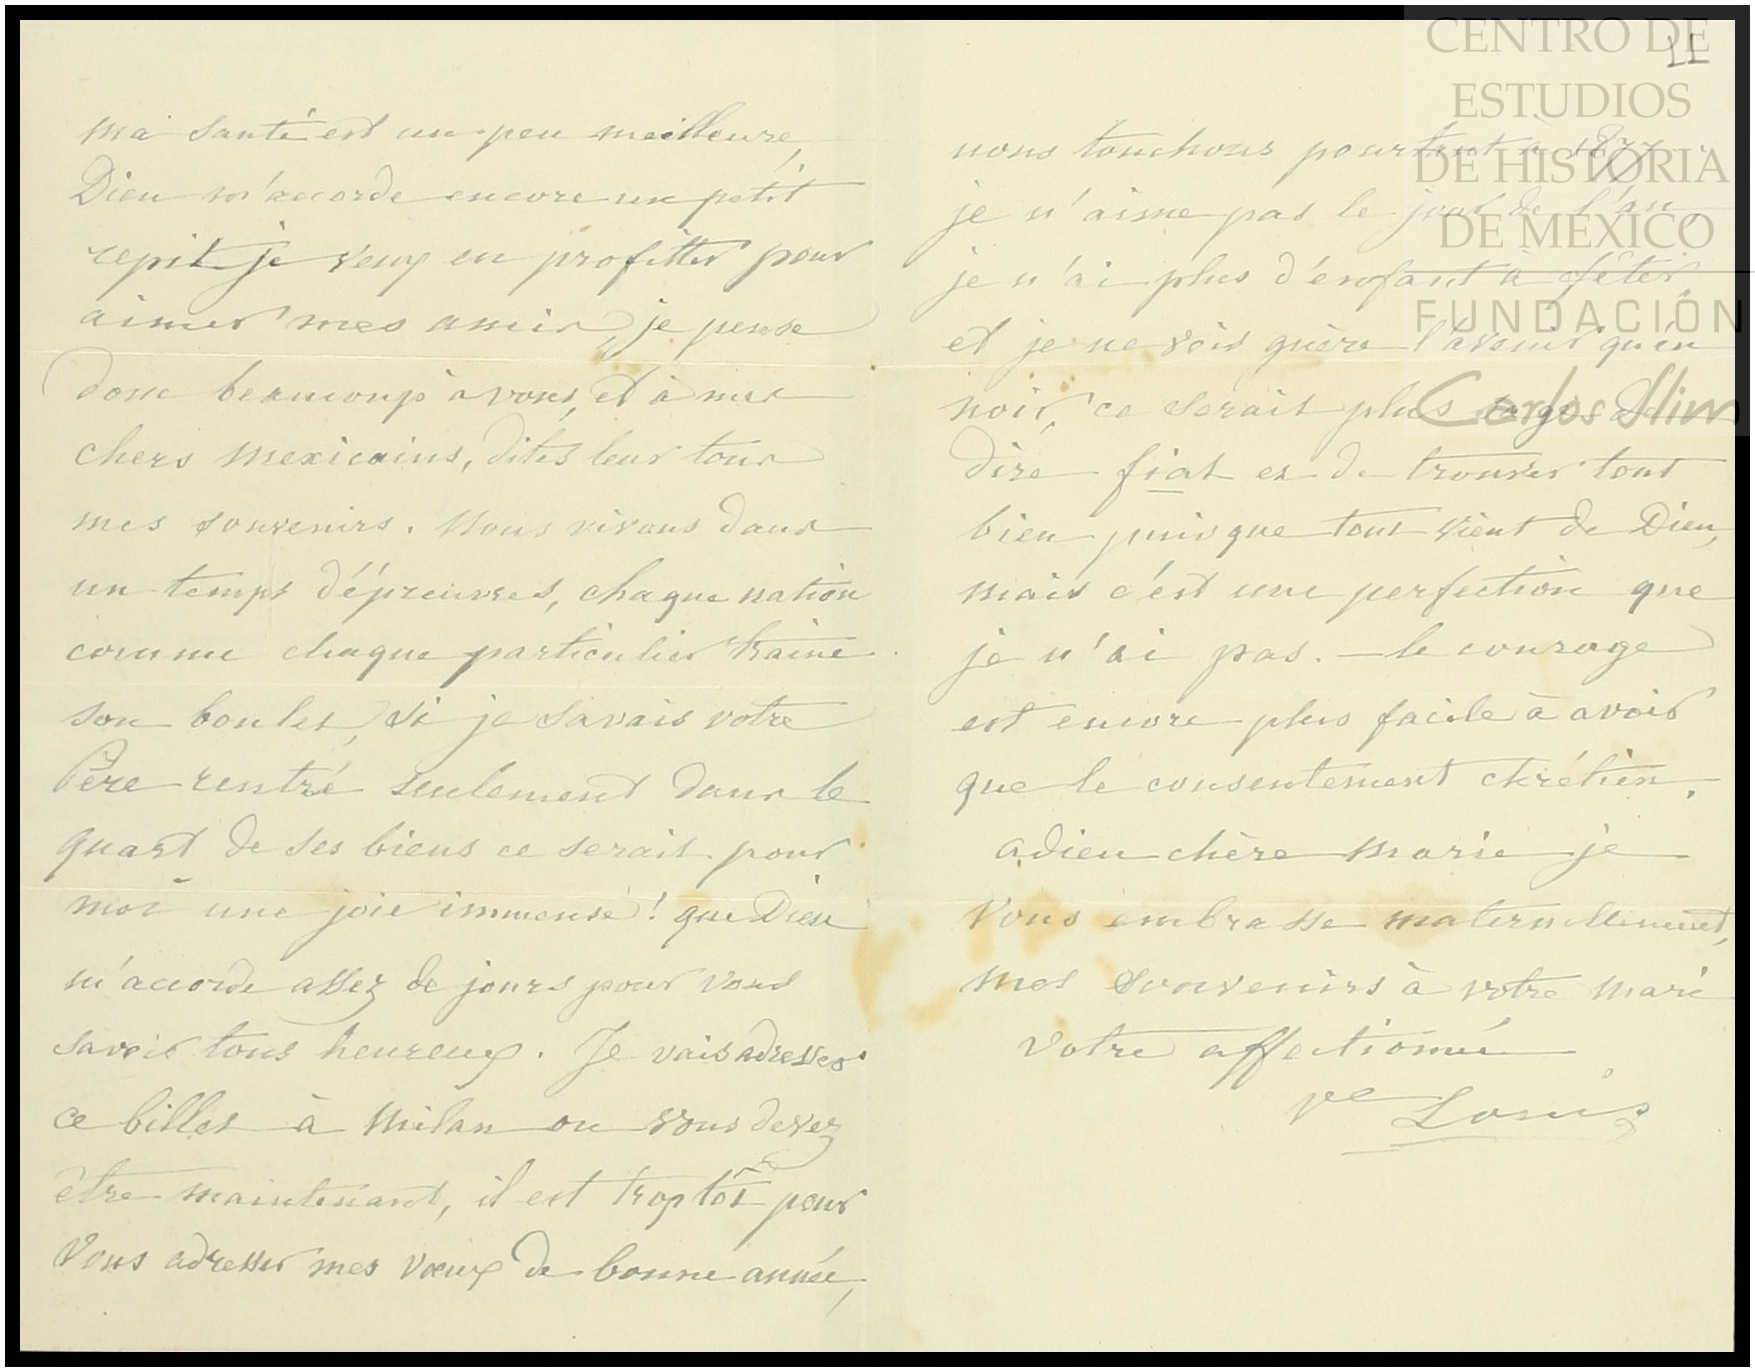 ma santé est un peu meilleure,
Dieu m'accorde encore un petit
repit je veux en profitter pour
aimer mes amis, je pense
donc beaucoup à vous, et à mes
chers mexicains, dites leur tous
mes souvenirs. Nous vivons dans
un temps d'épreuves, chaque nation
comme chaque particulier traine
son boulet, si je savais votre
Père rentré seulement dans le
quart de ses biens ce serait pour
moi une joie immense! que Dieu
m'accorde assez de jours pour vous
savoir tous heureux. Je vais adresser
ce billet à Milan ou vous devez
être maintenant, il est trop tôt pour
Vous adresser mes vœux de bonne année,
nous touchons pourtant à 1877
je n'aime pas le jour de l'an,
je n'ai plus d'enfant à fêter,
et je ne vois guère l'avenir qu'en
noir, ce serait plus sage de
dire fiat et de trouver tout
bien puisque tout vient de Dieu,
mais c'est une perfection que
je n'ai pas. — le courage
est encore plus facile à avoir
que le consentement chrétien.
adieu chère marie je
Vous embrasse maternellement,
mes souvenirs à votre mari
Votre affectionnée
Ve Louis
CENTRO DE
ESTUDIOS
DE HISTORIA
DE MÉXICO
FUNDACIÓN
Carlos Slim